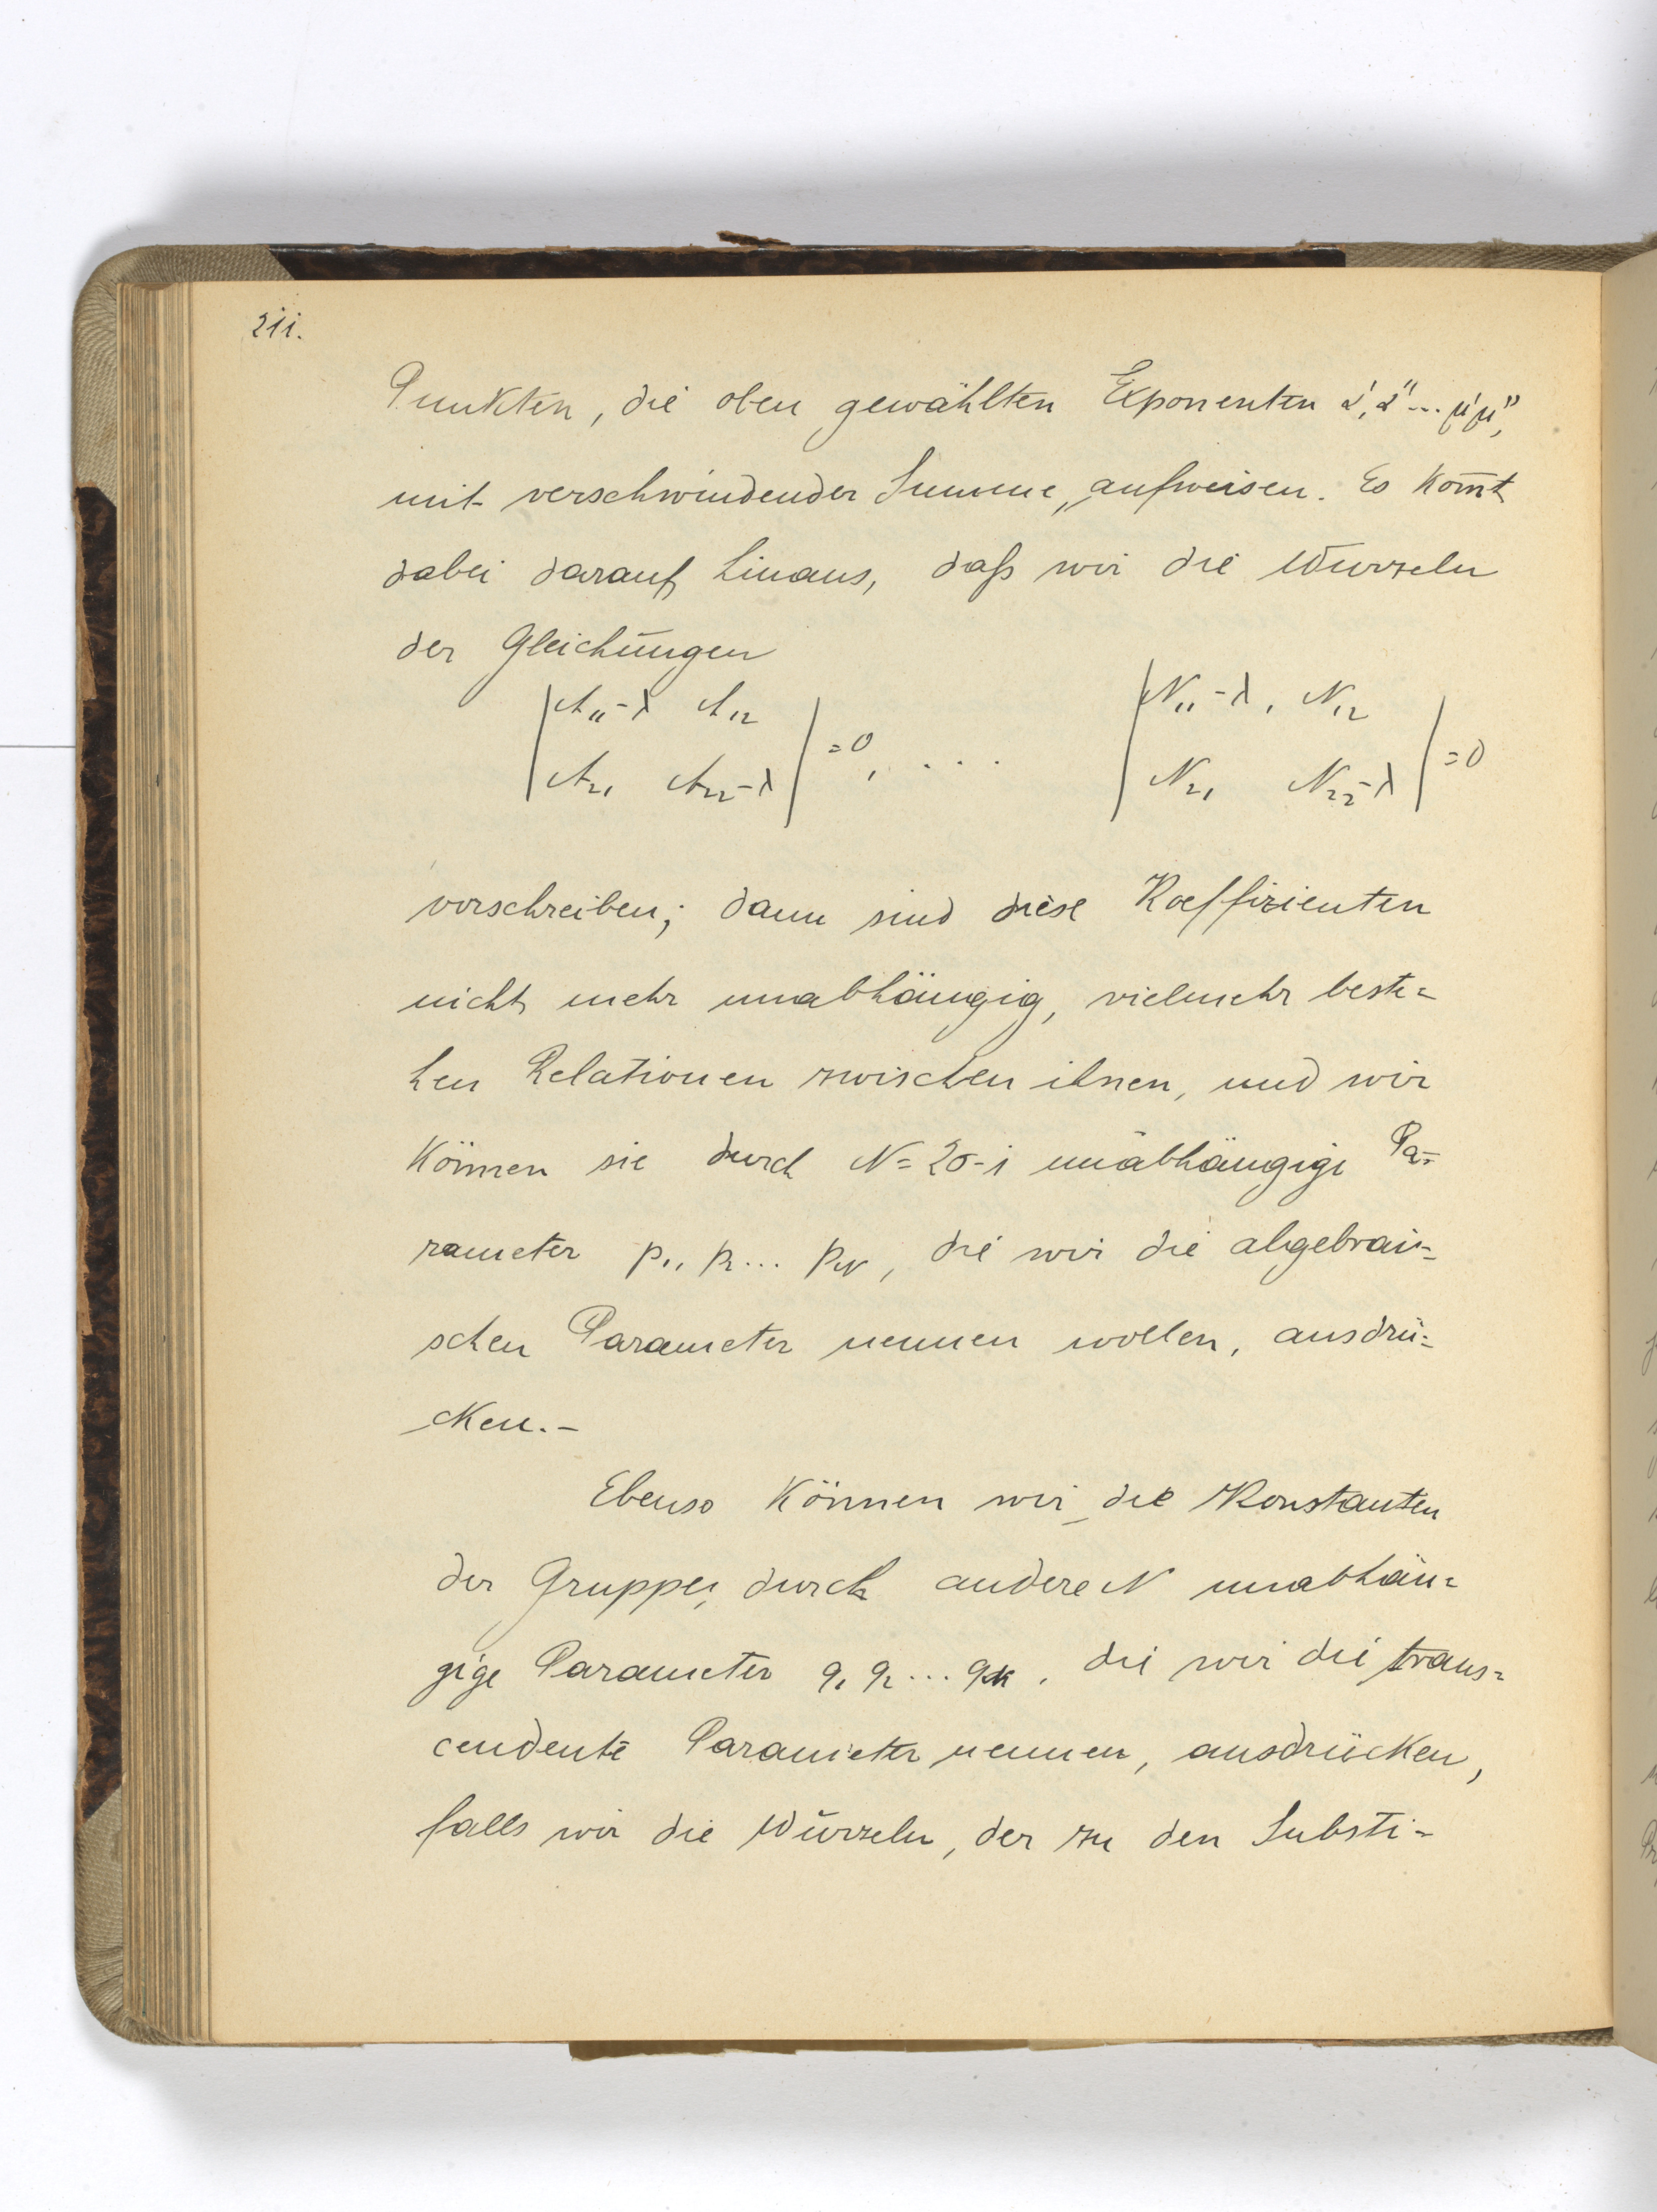 211.
Punkten, die oben gewählten Exponenten α', α''... μ' μ'',
mit verschwindender Summe, aufweisen. Es kom̄t
dabei darauf hinaus, daß wir die Wurzeln
der Gleichungen
| A₁₁-λ A₁₂ | | N₁₁-λ, N₁₂ |
| A₂₁ A₂₂-λ | =0, ... | N₂₁ N₂₂-λ | =0
vorschreiben; dann sind diese Koeffizienten
nicht mehr unabhängig, vielmehr beste=
hen Relationen zwischen ihnen, und wir
können sie durch N=2σ-1 unabhängige Pa=
rameter p₁, p₂... p_N, die wir die algebrai=
schen Parameter nennen wollen, ausdrü=
cken.-
Ebenso können wir die Konstanten
der Gruppe, durch andere N unabhän=
gige Parameter q₁ q₂... q_N, die wir die trans=
cendente Parameter nennen, ausdrücken,
falls wir die Wurzeln, der zu den Substi=